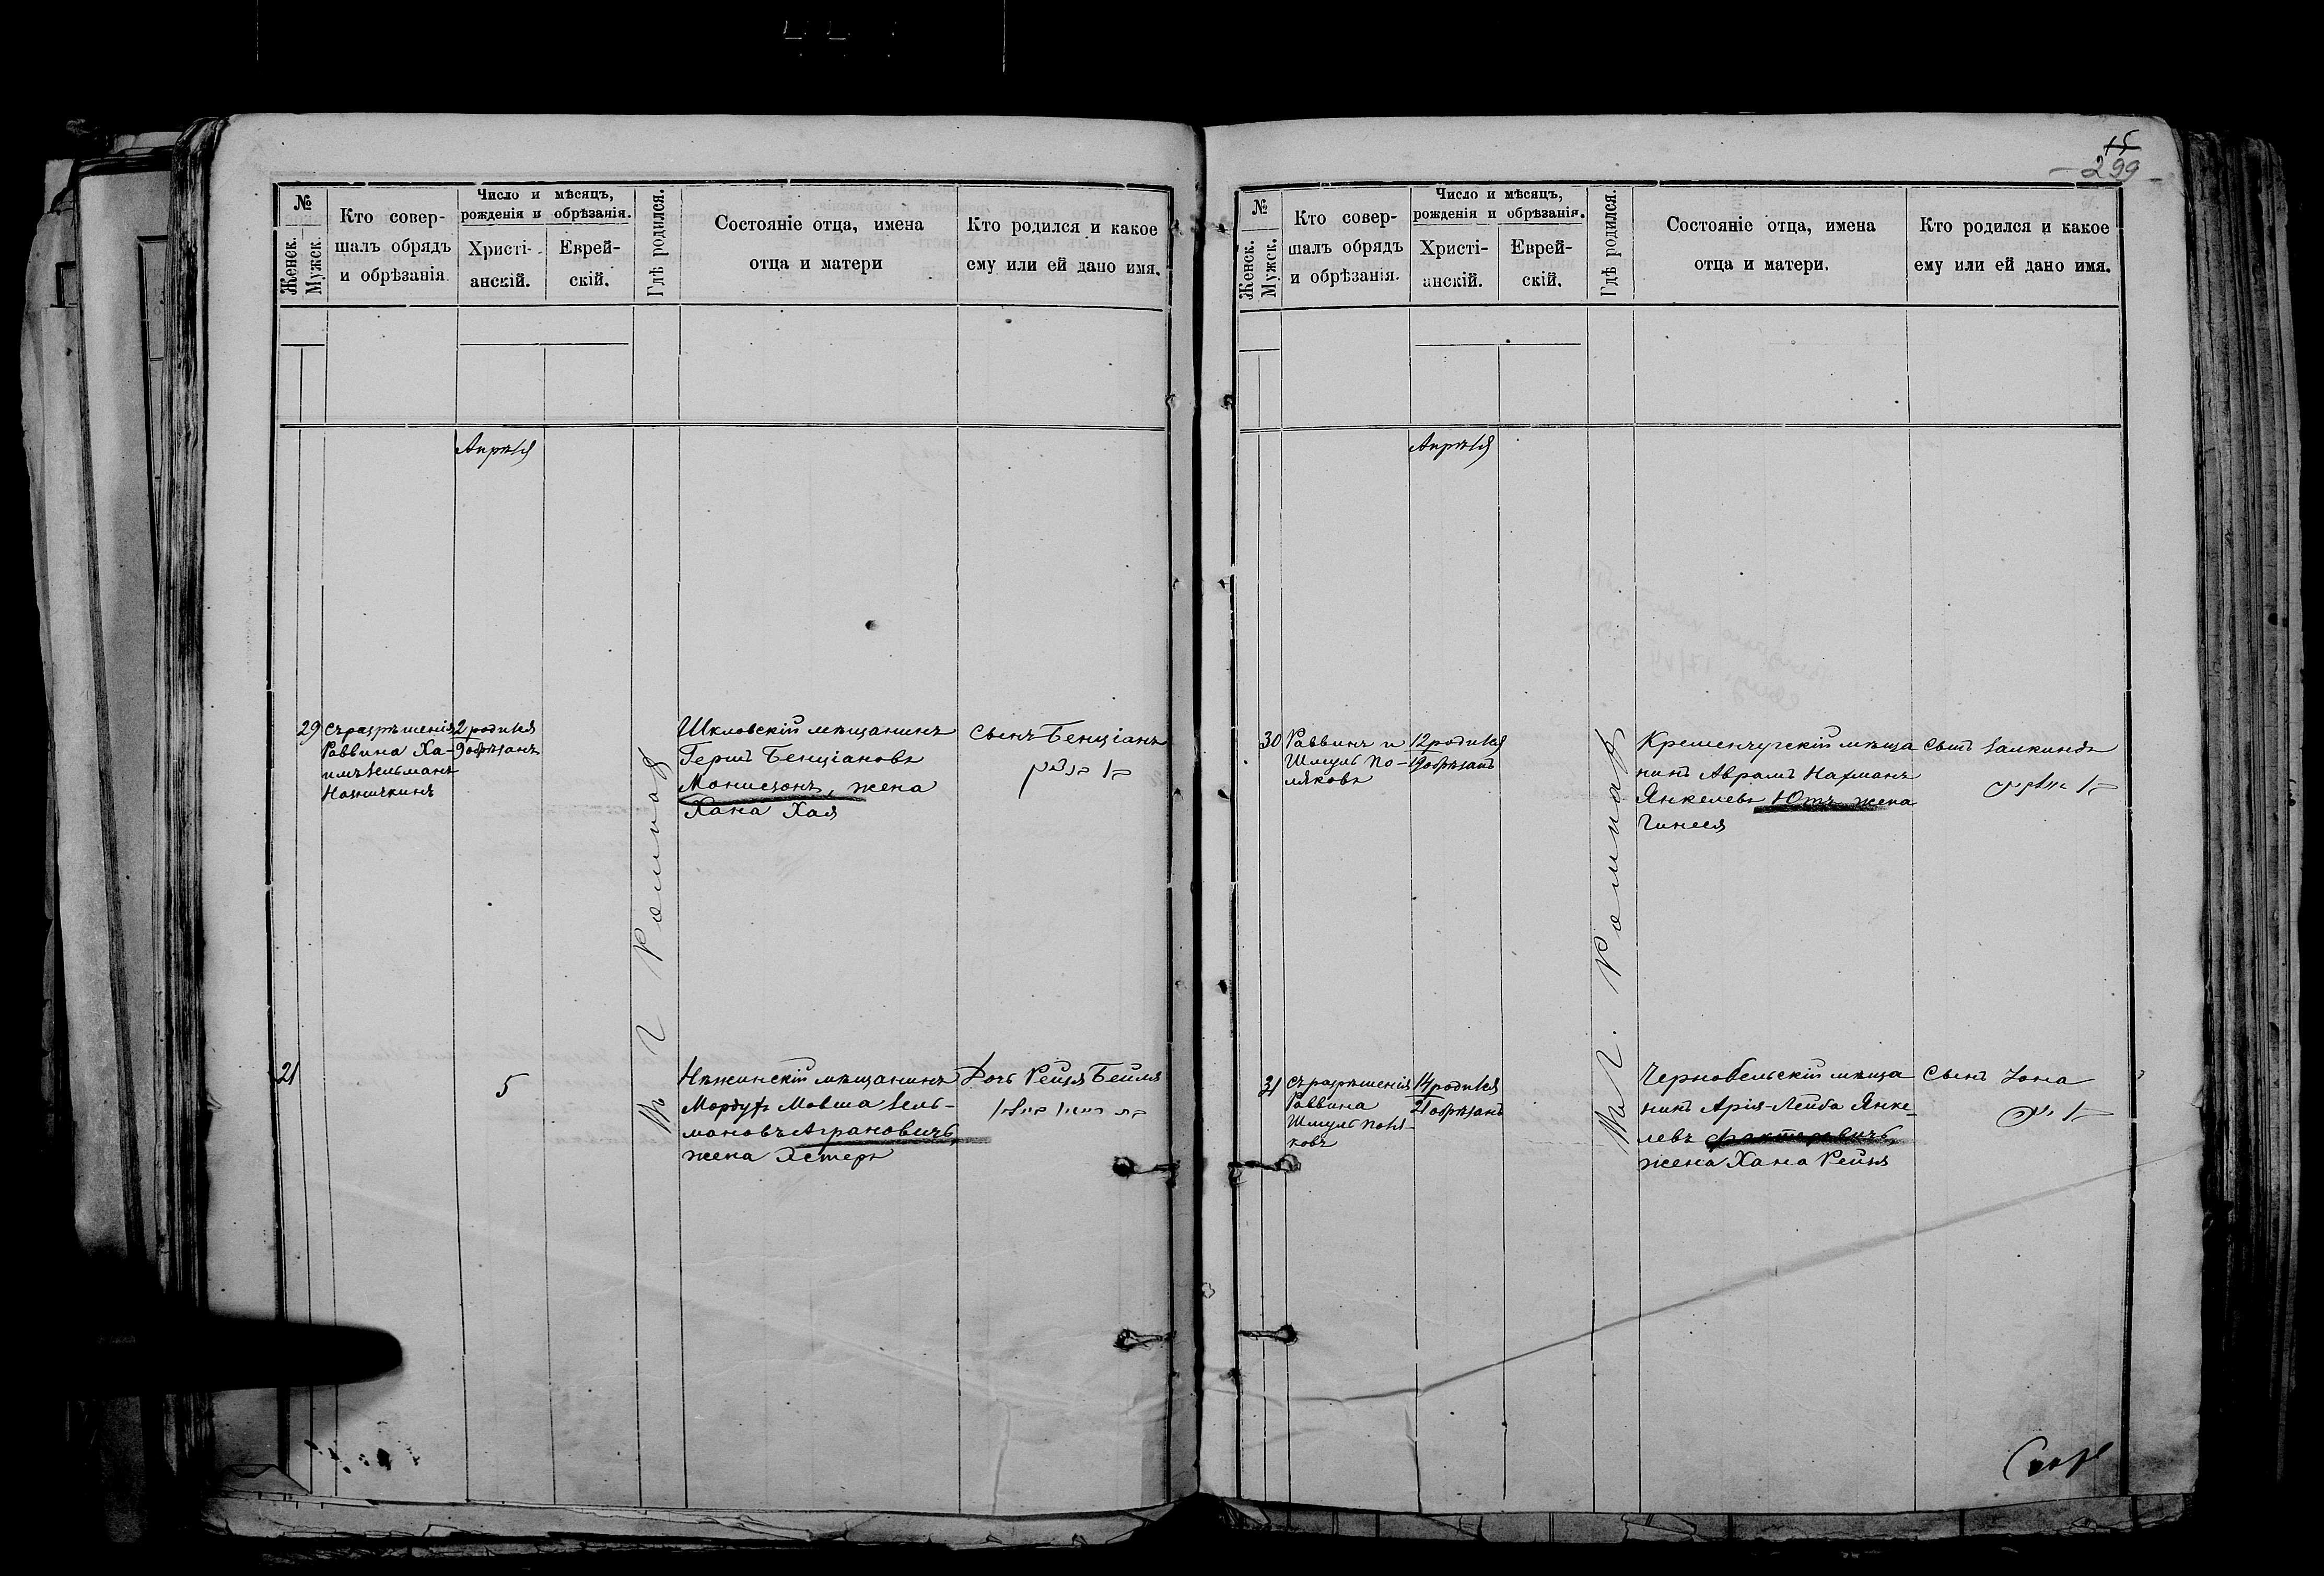 №
Женск.
Мужск.
Кто совер-
шалъ обрядъ
и обрѣзанія
Число и мѣсяцъ,
рожденія и обрѣзанія.
Христі-
анскій.
Еврей-
скій.
Гдѣ родился.
Состояніе отца, имена
отца и матери
Кто родился и какое
ему или ей дано имя.
Апрѣля
29
Съ разрѣшенія
Раввина Ха-
имъ Зельманъ
2 родился
9 обрѣзанъ
Въ г Ромнахъ
Шкловскій мѣщанинъ
Гершъ Бенціановъ
Монисзонъ, жена
Хана Хая
Сынъ Бенціанъ
21
5
Нѣжинскій мѣщанинъ
Мордухъ Мовша Зель-
мановъ Аграновичъ,
жена Эстеръ
Дочь Рейзя Бейля
15
299
№
Женск.
Мужск.
Кто совер-
шалъ обрядъ
и обрѣзанія.
Число и мѣсяцъ,
рожденія и обрѣзанія.
Христі-
анскій.
Еврей-
скій.
Гдѣ родился.
Состояніе отца, имена
отца и матери.
Кто родился и какое
ему или ей дано имя.
Апрѣля
30
Раввинъ и
Шмуль По-
ляковъ
12 родился
19 обрѣзанъ
Въ г. Ромнахъ
Кременчугскій мѣща
нинъ Абрамъ Нахманъ
Янкелевъ Ютъ жена
Гинеся
Сынъ Залкиндъ
31
Съ разрѣшенія
Раввина
Шмуль Поля-
ковъ
14 родился
21 обрѣзанъ
Чернобельскій мѣща
нинъ Арія-Лейба Янке-
левъ Факторовичъ,
жена Хана Рейзя
Сынъ Іона